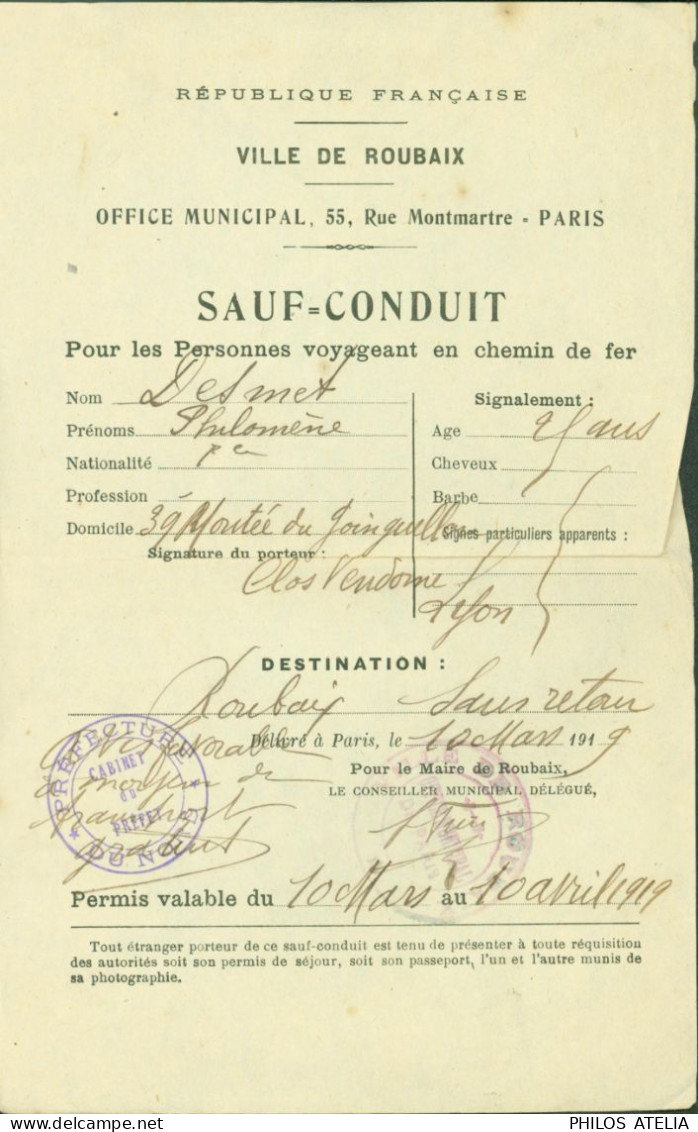 RÉPUBLIQUE FRANÇAISE
VILLE DE ROUBAIX
OFFICE MUNICIPAL, 55, Rue Montmartre - PARIS
SAUF=CONDUIT
Pour les Personnes voyageant en chemin de fer
Nom Desmet
Prénoms Philomène
Nationalité
Profession
Domicile 39 Montée du
Clos Vendome
Lyon
Signature du porteur :
Signalement :
Age ans
Cheveux
Barbe
Signes particuliers apparents :
DESTINATION :
Roubaix Sans retour
Délivré à Paris, le 10 Mars 1919
Avis favorable
Pour le Maire de Roubaix,
LE CONSEILLER MUNICIPAL DÉLÉGUÉ,
PRÉFECTURE DU NORD
CABINET
DU
PRÉFET
transport
gratuit
Permis valable du 10 Mars au 10 avril 1919
Tout étranger porteur de ce sauf-conduit est tenu de présenter à toute réquisition
des autorités soit son permis de séjour, soit son passeport, l'un et l'autre munis de
sa photographie.
PHILOS ATELIA